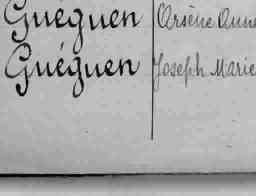 Guéguen Arsène Anne
Guéguen Joseph Marie